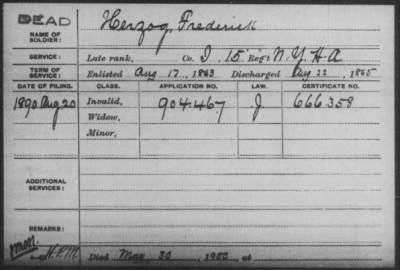 DEAD
NAME OF SOLDIER: Herzog, Frederick
SERVICE: Late rank, Co. I 15 Reg't N.Y.H.A
TERM OF SERVICE: Enlisted Aug 17, 1863 Discharged Aug 22, 1865
DATE OF FILING. CLASS. APPLICATION NO. LAW. CERTIFICATE NO.
1890 Aug 20 Invalid, 904.467 J 666358
Widow,
Minor,
ADDITIONAL SERVICES:
REMARKS:
H.F.M. Died 30, 1902, at